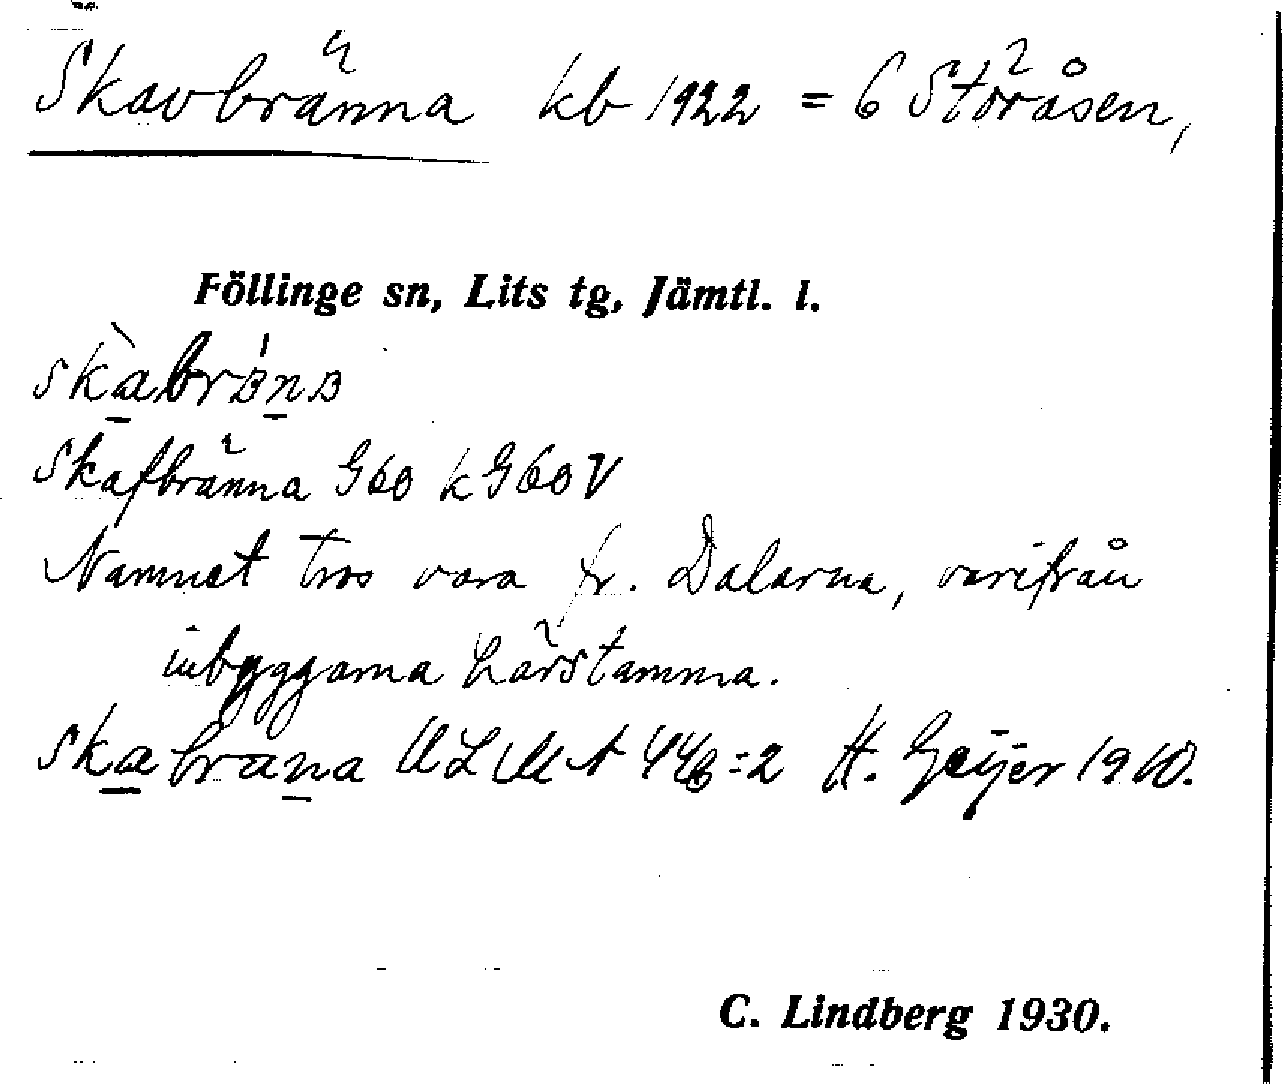 Skavbränna kb 1922 = 6 Storåsen,
Föllinge sn, Lits tg, Jämtl. l.
Skafbränna G60 k G60V
Namnet tros vara fr. Dalarna, varifrån
inbyggarna härstamma.
skabrana ULMA 446:2 H. Geijer 1910.
C. Lindberg 1930.